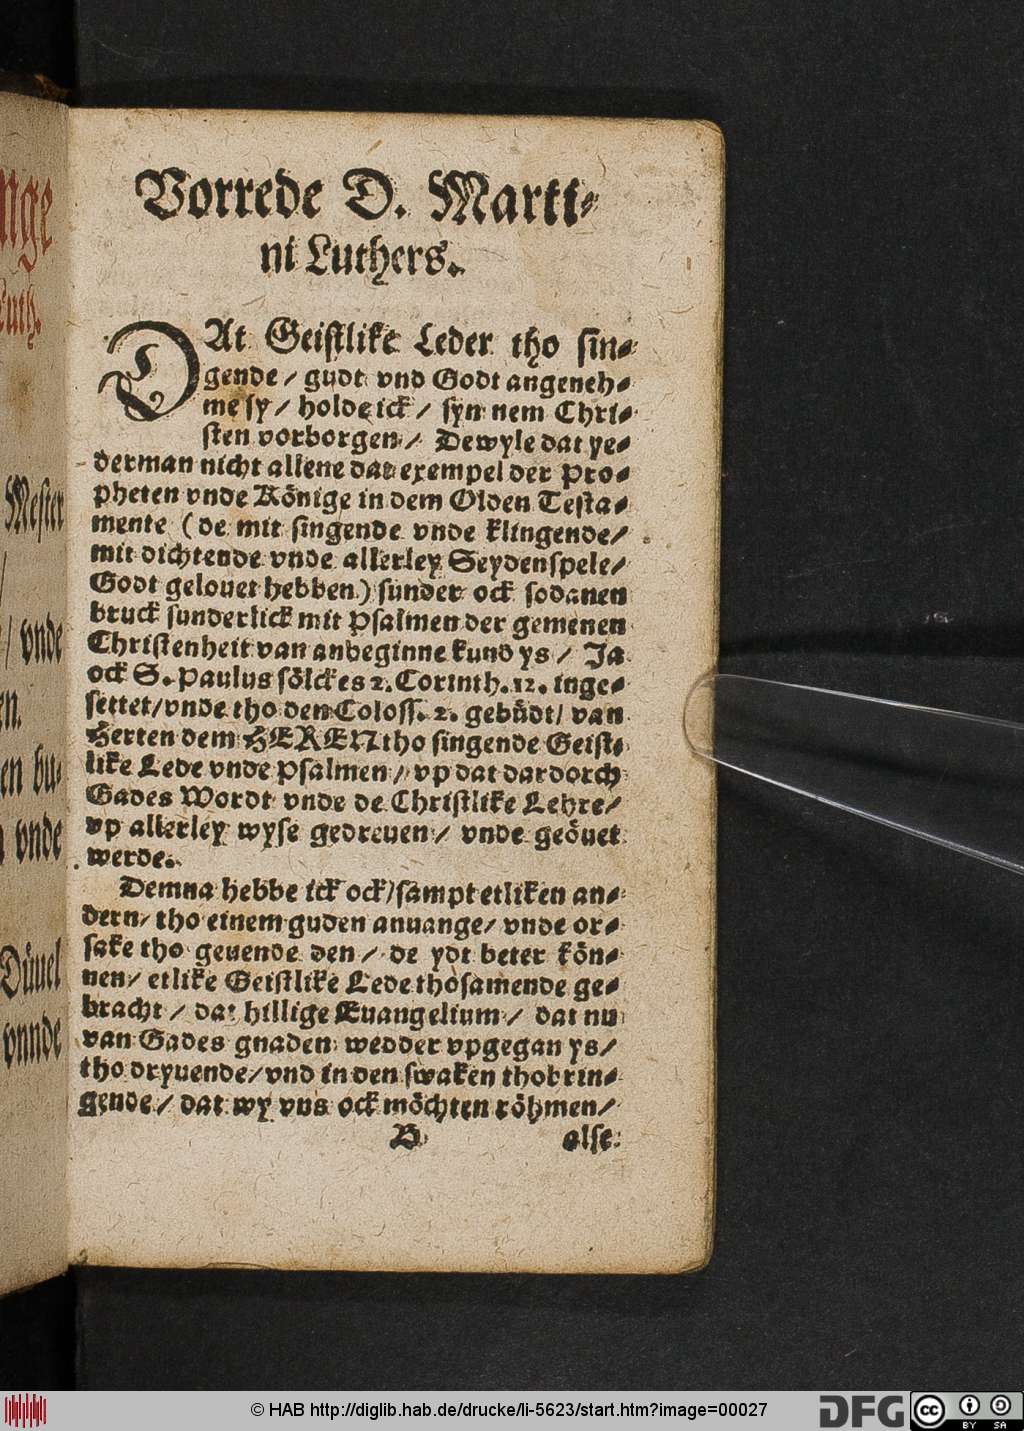 nge
Luth.
Mester
/
/ vnde
en.
en bu⸗
n vnde
Düuel
vnnde
Vorrede D. Marti⸗
ni Luthers.
DAt Geistlike Leder tho sin⸗
gende / gudt vnd Godt angeneh⸗
me sy / holde ick / syn nem Chri⸗
sten vorborgen / Dewyle dat ye⸗
derman nicht allene dat exempel der Pro⸗
pheten vnde Könige in dem Olden Testa⸗
mente (de mit singende vnde klingende /
mit dichtende vnde allerley Seydenspele /
Godt gelouet hebben) sunder ock sodanen
bruck sunderlick mit Psalmen der gemenen
Christenheit van anbeginne kund ys / Ja
ock S. Paulus sölckes 2. Corinth. 12. inge⸗
settet / vnde tho den Coloss. 2. gebüdt / van
Herten dem HEREN tho singende Geist⸗
like Lede vnde Psalmen / vp dat dardorch
Gades Wordt vnde de Christlike Lehre /
vp allerley wyse gedreuen / vnde geöuet
werde.
Demna hebbe ick ock / sampt etliken an⸗
dern / tho einem guden anuange / vnde or⸗
sake tho geuende den / de ydt beter kön⸗
nen / etlike Geistlike Lede thosamende ge⸗
bracht / dat hillige Euangelium / dat nu
van Gades gnaden wedder vpgegan ys /
tho dryuende / vnd in den swaken thobrin⸗
gende / dat wy vns ock möchten röhmen /
B alse
© HAB http://diglib.hab.de/drucke/li-5623/start.htm?image=00027
DFG
cc BY SA